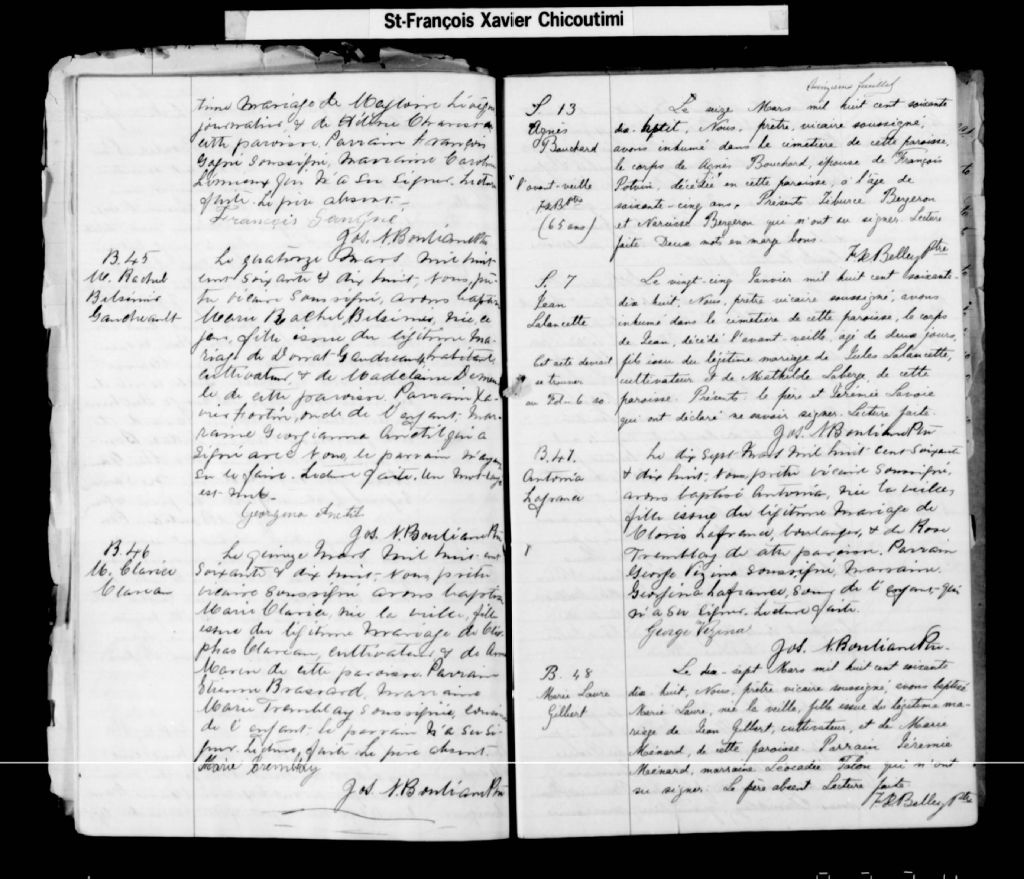 St-François Xavier Chicoutimi
time mariage de
journalier, & de
cette paroisse. Parrain François
soussigné, marraine Caroline
qui n'a su signer. Lecture
faite. Le père absent.
François
Jos. N. Boulianne Ptre
B. 45
M. Rachel
Belsimir
Le quatorze Mars mil huit
cent soixante & dix huit, Nous, prê-
tre vicaire soussigné, avons baptisé
Marie Rachel, née ce
jour, fille issue du légitime Ma-
riage de
cultivateur, & de Madelaine
de cette paroisse. Parrain Xa-
vier Fortin, oncle de l'enfant, Mar-
raine Georgianna Anctil qui a
signé avec Nous, le parrain n'ayant
su le faire. Lecture faite. Un mot
est nul.
Georgina Anctil
Jos. N. Boulianne Ptre
B. 46
M. Clarice
Claveau
Le quinze Mars mil huit cent
soixante & dix huit, Nous prêtre
vicaire soussigné avons baptisé
Marie Clarice, née la veille, fille
issue du légitime mariage de Cléo-
phas Claveau, cultivateur, & de
de cette paroisse. Parrain
Etienne Brassard, marraine
Marie Tremblay soussignée, cousine
de l'enfant. le parrain n'a su si-
gner. Lecture faite. Le père absent.
Marie Tremblay
Jos. N. Boulianne Ptre
Quinzième feuillet
S. 13
Agnès
Bouchard
l'avant-veille
(65 ans)
Le seize Mars mil huit cent soixante
dix-huit, Nous, prêtre, vicaire soussigné,
avons inhumé dans le cimetière de cette paroisse,
le corps de Agnès Bouchard, épouse de François
Potvin, décédée en cette paroisse, à l'âge de
soixante-cinq ans. Présents Tiburce Bergeron
et Narcisse Bergeron qui n'ont su signer. Lecture
faite. Deux mots en marge bons.
F. X. Belley Ptre
S. 7
Jean
Lalancette
Cet acte devrait
se trouver
au Fol-6 so.
Le vingt-cinq Janvier mil huit cent soixante-
dix-huit, Nous, prêtre vicaire soussigné, avons
inhumé dans le cimetière de cette paroisse, le corps
de Jean, décédé l'avant-veille, agé de deux jours,
fils issu du légitime mariage de Jules Lalancette,
cultivateur et de Mathilde Laberge de cette
paroisse. Présents le père et Jérémie Savoie
qui ont déclaré ne savoir signer. Lecture faite.
Jos. N. Boulianne Ptre
B. 47.
Antonia
Lafrance
Le dix sept Mars mil huit cent soixante
& dix huit, Nous prêtre vicaire soussigné,
avons baptisé Antonia, née la veille,
fille issue du légitime mariage de
Clovis Lafrance, boulanger, & de Rose
Tremblay de cette paroisse. Parrain
George Vézina soussigné, marraine
Georgina Lafrance, soeur de l'enfant, qui
n'a su signer. Lecture faite.
George Vézina
Jos. N. Boulianne Ptre
B. 48
Marie Laure
Gilbert
Le dix-sept Mars mil huit cent soixante
dix-huit, Nous, prêtre vicaire soussigné, avons baptisé
Marie Laure, née la veille, fille issue du légitime ma-
riage de Jean Gilbert, cultivateur, et de Marie
Ménard, de cette paroisse. Parrain Jérémie
Ménard, marraine Léocadie Talon qui n'ont
su signer. Le père absent. Lecture faite.
F. X. Belley Ptre